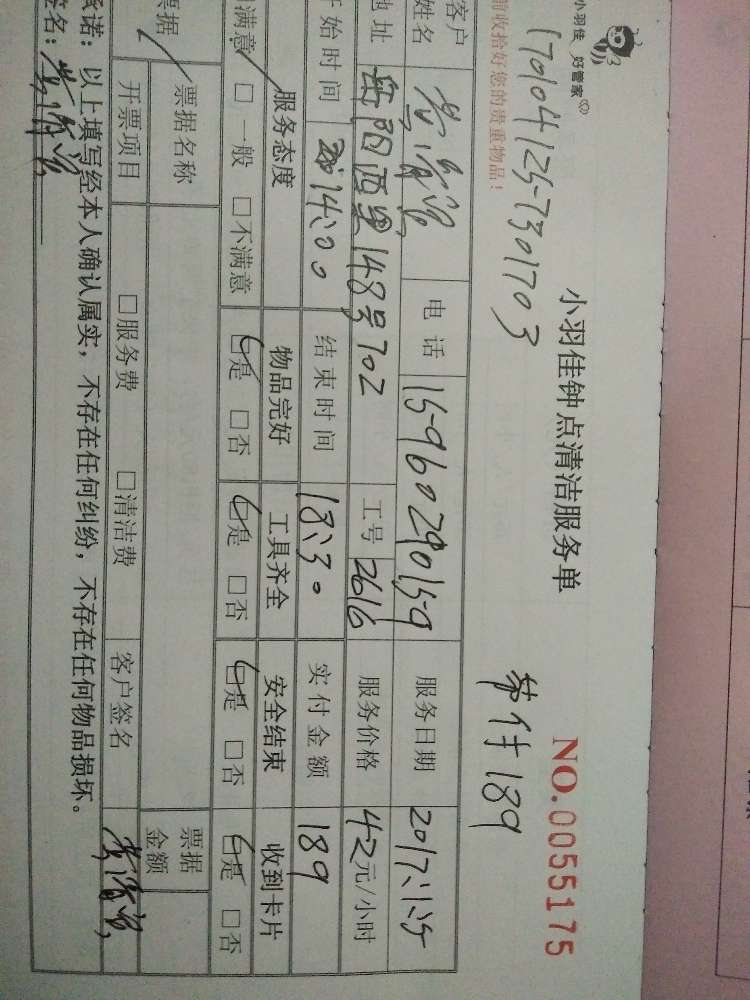 小羽佳 好管家
小羽佳钟点清洁服务单
NO.0055175
170104125-7301703
带件189
前收拾好您的贵重物品!
客户姓名 电话 15960290159 服务日期 2017.1.25
地址 岳阳西里148号702 工号 2616 服务价格 42元/小时
开始时间 14:00 结束时间 18:30 实付金额 189
服务态度 物品完好 工具齐全 安全结束 收到卡片
满意 □一般 □不满意 □是 □否 □是 □否 □是 □否 □是 □否
票据 票据名称 票据金额
开票项目 □服务费 □清洁费 客户签名
承诺：以上填写经本人确认属实，不存在任何纠纷，不存在任何物品损坏。
签名：